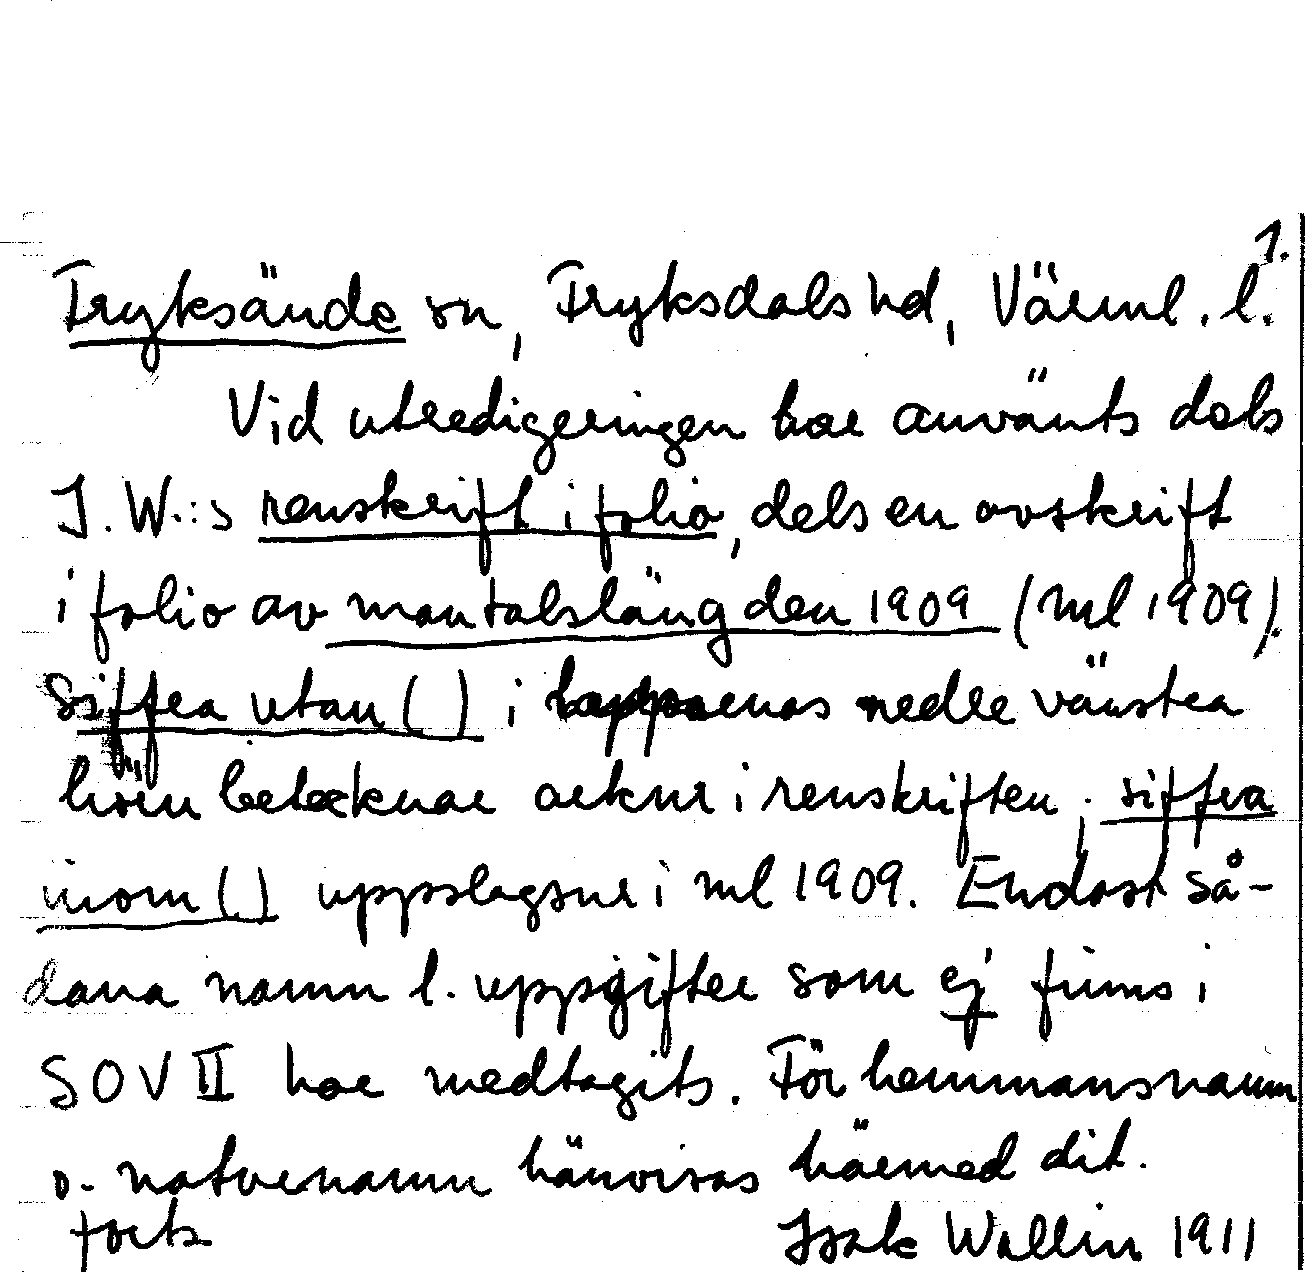 1.
Fryksände sn, Fryksdals hd, Värml. l.
Vid utredigeringen har använts dels
I. W.:s renskrift i folio, dels en avskrift
i folio av mantalslängden 1909 (ml 1909).
Siffra utan ( ) i lapparnas nedre vänstra
hörn betecknar arknr i renskriften; siffra
inom ( ) uppslagsnr i ml 1909. Endast så-
dana namn l. uppgifter som ej finns i
SOV II har medtagits. För hemmansnamn
o. naturnamn hänvisas härmed dit.
forts. Isak Wallin 1911